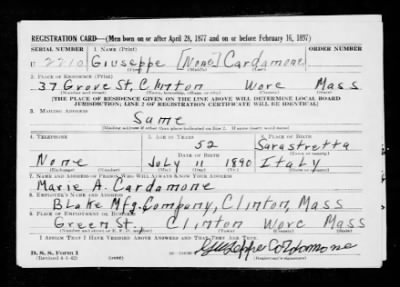 REGISTRATION CARD—(Men born on or after April 28, 1877 and on or before February 16, 1897)
SERIAL NUMBER 1. NAME (Print) ORDER NUMBER
U 2210 Giuseppe [None] Cardamone
(First) (Middle) (Last)
2. PLACE OF RESIDENCE (Print)
37 Grove St. Clinton Worc Mass
[THE PLACE OF RESIDENCE GIVEN ON THE LINE ABOVE WILL DETERMINE LOCAL BOARD
JURISDICTION; LINE 2 OF REGISTRATION CERTIFICATE WILL BE IDENTICAL]
3. MAILING ADDRESS
Same
[Mailing address if other than place indicated on line 2. If same insert word same]
4. TELEPHONE 5. AGE IN YEARS 6. PLACE OF BIRTH
52 Sarastretta
DATE OF BIRTH
None July 11 1890 Italy
(Exchange) (Number) (Mo.) (Day) (Yr.)
7. NAME AND ADDRESS OF PERSON WHO WILL ALWAYS KNOW YOUR ADDRESS
Marie A. Cardamone
8. EMPLOYER'S NAME AND ADDRESS
Blake Mfg. Company, Clinton, Mass
9. PLACE OF EMPLOYMENT OR BUSINESS
Green St. Clinton Worc Mass
I AFFIRM THAT I HAVE VERIFIED ABOVE ANSWERS AND THAT THEY ARE TRUE.
D. S. S. Form 1 Giuseppe Cardamone
(Registrant's signature)